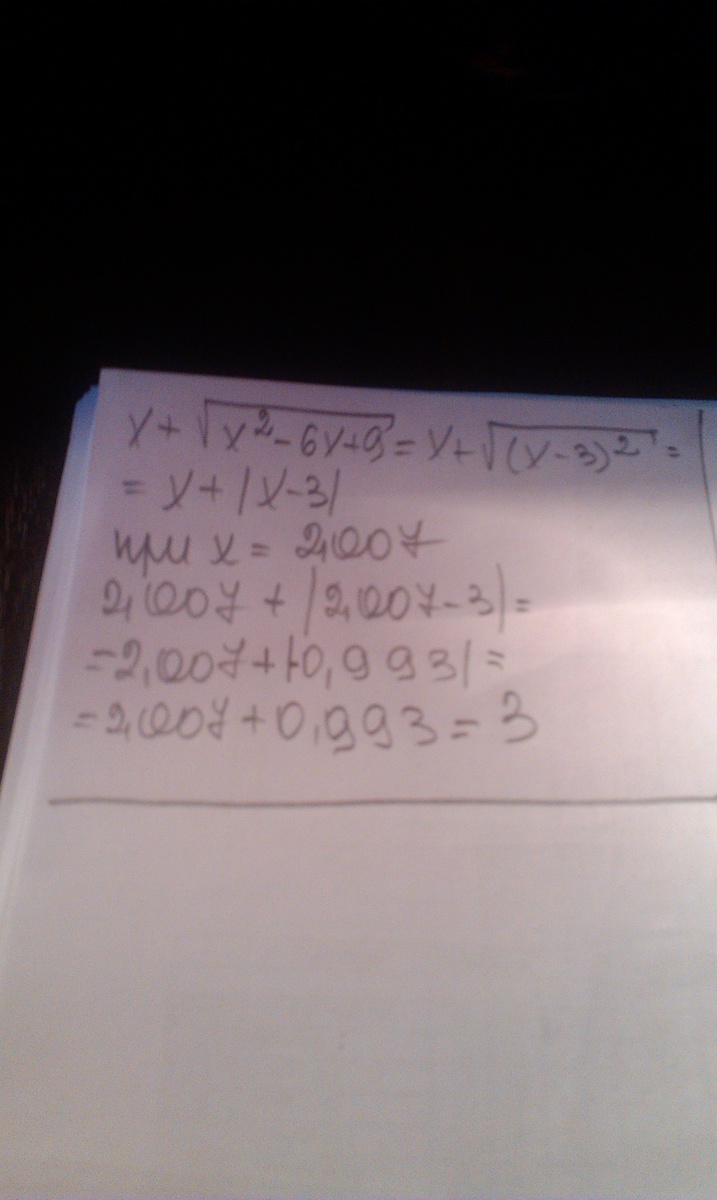 x + √(x² - 6x + 9) = x + √((x - 3)²) =
= x + |x - 3|
при x = 2,007
2,007 + |2,007 - 3| =
= 2,007 + |-0,993| =
= 2,007 + 0,993 = 3